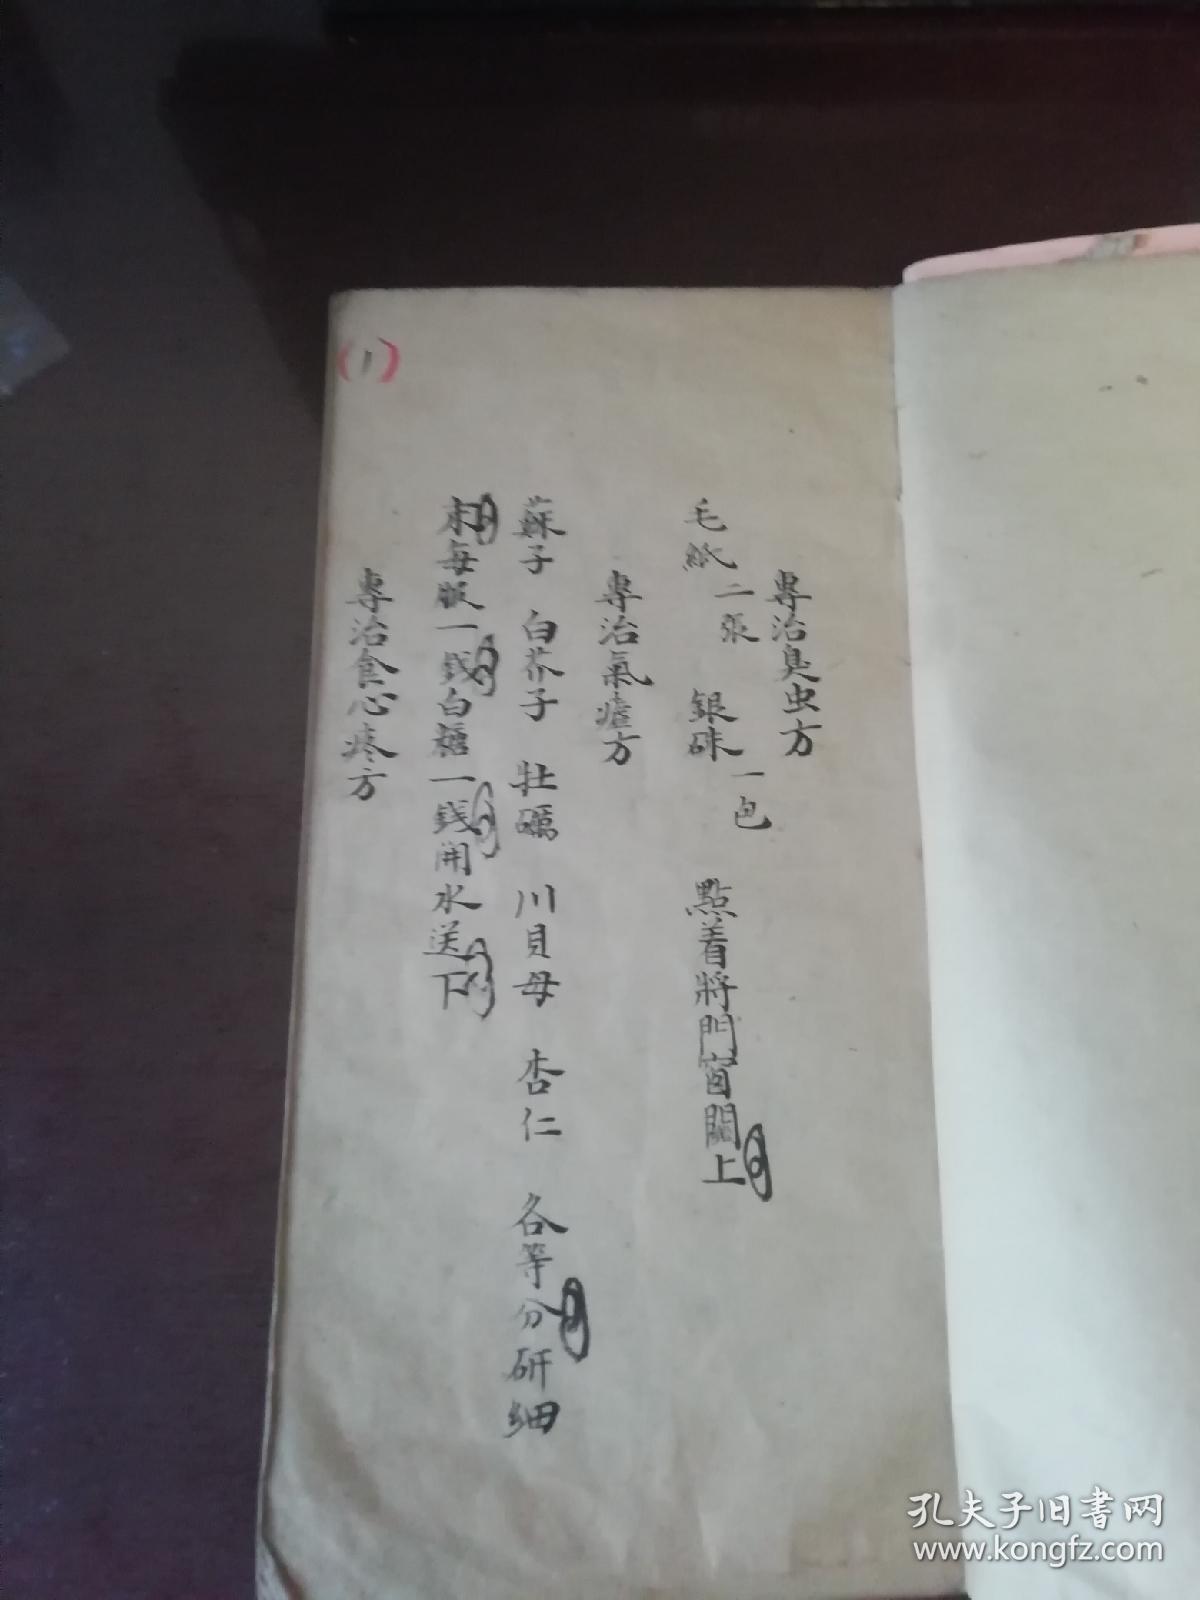 專治臭虫方
毛紙二張 銀硃一包 點着將門窗關上
專治氣瘧方
蘇子 白芥子 牡礪 川貝母 杏仁 各等分研細
末每服一錢白糖一錢開水送下
專治食心疼方
(1)
孔夫子旧书网
www.kongfz.com